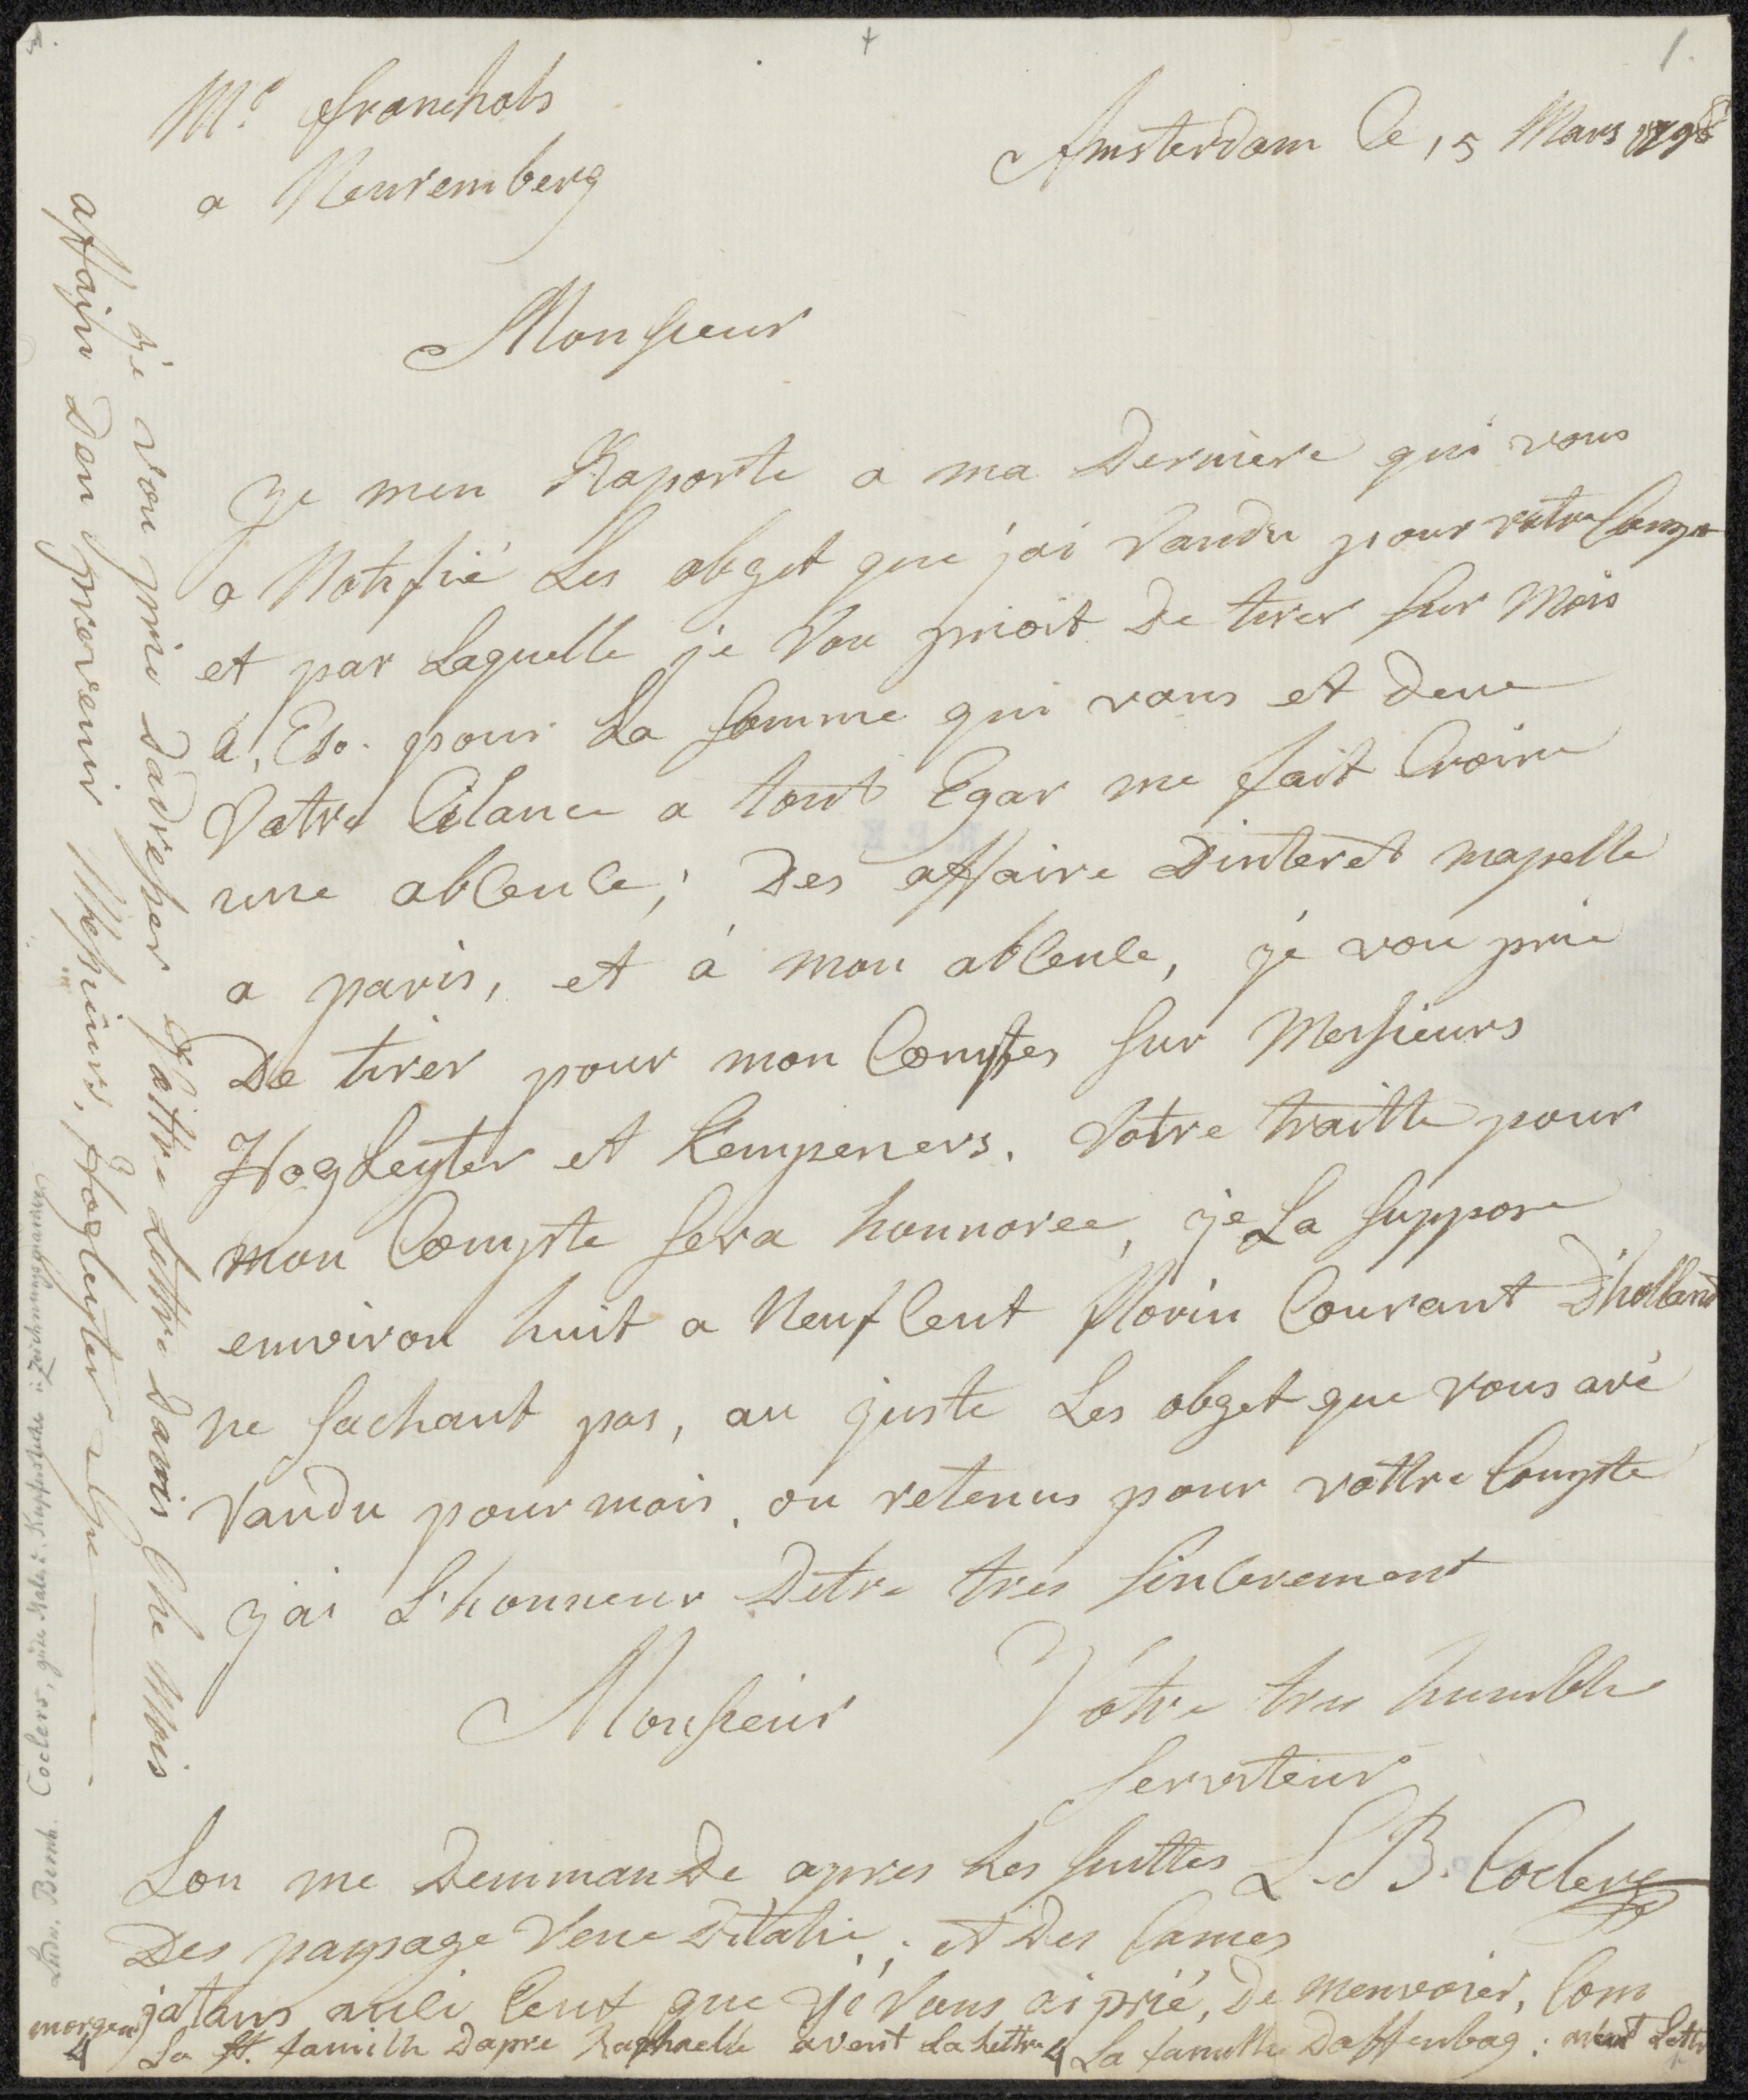 1.
Mr. franchols
a Neuremberg
Amsterdam Ce 15 Mars 1798
Monsieur
Je men Raporte a ma Derniere qui vous
a Notifié Les obget que j'ai Vandu pour votre Compt
et par Laquelle je Vou prioit De tirer sur Mois
a, Eso. pour La somme qui vous et deue
Votre Cilance a tout Egar me fait Croire
une abcence; Des affaire Dinteret mapelle
a paris, et à mon abcence, je vou prie
De tirer pour mon Comptes sur Messieurs
HogLeyter et Kempeners. Votre traitte pour
mon Compte sera honnoree, je La suppose
environ huit a Neuf Cent florin Courant D'holland
ne sachant pas, au juste Les obget que vous avé
Vandu pour mois, ou retenus pour vottre Compte
j'ai L'honneur Detre tres sincerement
Monsieur
Votre tres humble
serviteur
L. B. Coclers
Lon me Demmande apres Les suittes
Des paysage Veue Ditalie; et Des Cames
jatans auci Ceux que jé Vous ai prié, De menvoier, Com
La St. famille Dapre Raphaelle avent La Lettre
La famille Daffenbag: avent Lettre
morgen
je vou prie Dadresser Vottre Lettre Davis Che Mois
affain Den prevenir Messieurs, Hogleyter
Ludw. Bernh. Coclers, gün. Maler, Kupferstecher u. Zeichnungssamml.